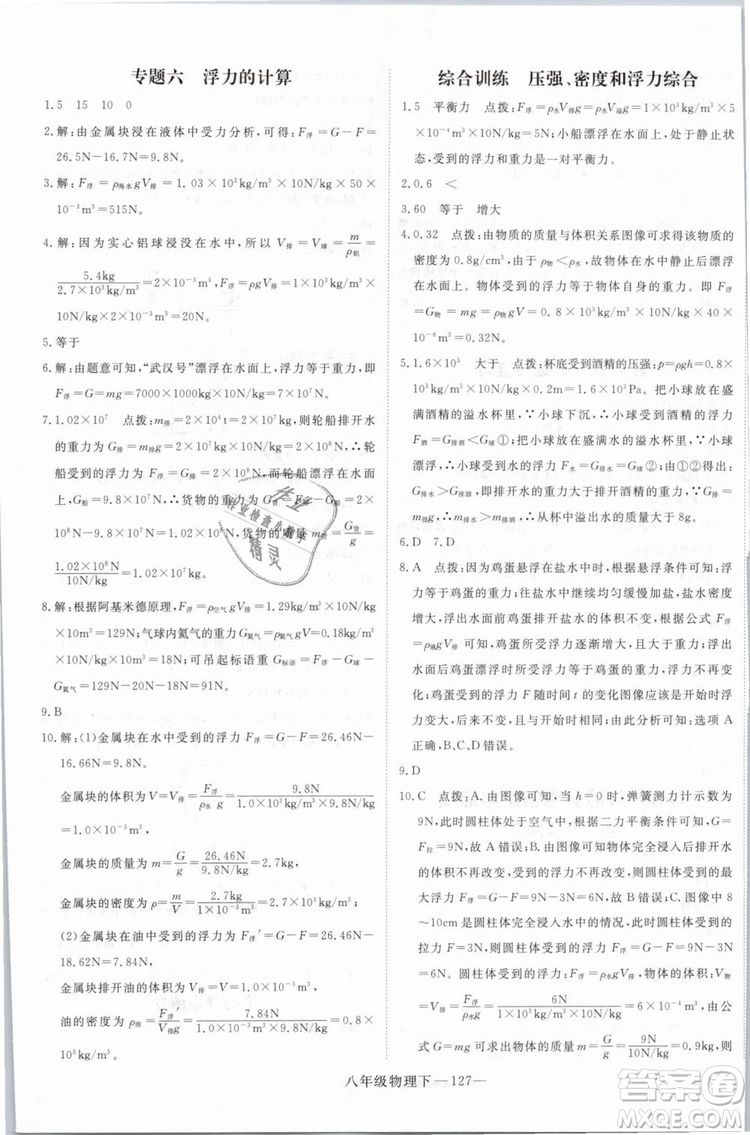 专题六 浮力的计算
1.5 15 10 0
2.解：由金属块浸在液体中受力分析，可得：F浮=G-F=
26.5N-16.7N=9.8N。
3.解：F浮=ρ海水gV排=1.03×10³kg/m³×10N/kg×50×
10⁻³m³=515N。
4.解：因为实心铝球浸没在水中，所以V排=V球=m/ρ铝=
5.4kg/2.7×10³kg/m³=2×10⁻³m³；F浮=ρ水gV排=1×10³kg/m³×
10N/kg×2×10⁻³m³=20N。
5.等于
6.解：由题意可知，“武汉号”漂浮在水面上，浮力等于重力，即
F浮=G=mg=7000×1000kg×10N/kg=7×10⁷N。
7.1.02×10⁷ 点拨：m排=2×10⁴t=2×10⁷kg，则轮船排开水
的重力为G排=m排g=2×10⁷kg×9.8N/kg=19.6×10⁷N，∴轮
船受到的浮力为F浮=G排=19.6×10⁷N，而轮船漂浮在水面
上，G船=9.8×10⁷N，∴货物的重力为G货=F浮-G船=
19.6×10⁷N-9.8×10⁷N=9.8×10⁷N，货物的质量m货=G货/g=
8.解：根据阿基米德原理，F浮=ρ空气gV排=1.29kg/m³×10N/kg
×10m³=129N；气球内氦气的重力G氦气=m氦气g=ρ氦气gV=
9.B
10.解：(1)金属块在水中受到的浮力F浮=G-F=26.46N-
16.66N=9.8N。
金属块的体积为V=V排=F浮/ρ水g=9.8N/1.0×10³kg/m³×9.8N/kg=
1×10⁻³m³
金属块的质量为m=G/g=26.46N/9.8N/kg=2.7kg，
金属块的密度为ρ=m/V=2.7kg/1×10⁻³m³=2.7×10³kg/m³；
(2)金属块在油中受到的浮力F浮′=G-F=26.46N-
18.62N=7.84N，
金属块排开油的体积为V排=V=1×10⁻³m³，
油的密度为ρ油=F浮′/V排g=7.84N/1.0×10⁻³m³×9.8N/kg=0.8×
10³kg/m³。
综合训练 压强、密度和浮力综合
1.5 平衡力 点拨：F浮=ρ水gV排=ρ水gV溢=1×10³kg/m³×5
×10⁻⁴m³×10N/kg=5N；小船漂浮在水面上，处于静止状
态，受到的浮力和重力是一对平衡力。
2.0.6 <
3.60 等于 增大
4.0.32 点拨：由物质的质量与体积关系图像可求得该物质的
密度为0.8g/cm³，ρ物<ρ水，故物体在水中静止时是漂浮
在水面。物体受到的浮力等于物体自身的重力。即F浮
=G物=mg=ρ物gV物=0.8×10³kg/m³×10N/kg×40×
10⁻⁶m³=0.32N。
5.1.6×10³ 大于 点拨：杯底受到酒精的压强：p=ρgh=0.8×
10³kg/m³×10N/kg×0.2m=1.6×10³Pa。把小球放在盛
满酒精的溢水杯里，∵小球下沉，∴小球受到酒精的浮力
F酒=G排酒精<G球①；小球放在盛满水的溢水杯里，∵小球
漂浮在水面上，∴小球受到水的浮力F水=G排水=G球②；由①②
得：G排水>G排酒精，∴m排水>排开酒精的质量，∵从酒精溢水
杯中溢出酒精的质量是8g，∴从杯中溢出水的质量大于8g。
6.D 7.D
8.A 点拨：因为鸡蛋悬浮在盐水中，根据悬浮条件可知：浮
力等于重力；在向盐水中继续均匀缓慢加盐时，盐水的密
度增大，由于鸡蛋排开盐水的体积不变，根据公式F浮
=ρ液gV排可知，鸡蛋受到的浮力逐渐增大，当鸡蛋漂浮在水面
上，以后鸡蛋漂浮时受到的浮力等于鸡蛋的重力，由于鸡
蛋的重力不变，所以鸡蛋受到的浮力等于重力，浮力不再变
化；鸡蛋受到的浮力F随时间t的变化图像应该是开始浮
力增大，后来浮力不变，与A选项相同；由此可知，选项A
正确，B、C、D错误。
9.D
10.C 点拨：A.由图像可知，当h=0时，弹簧测力计示数为
9N，此时圆柱体处于空气中，根据二力平衡条件可知，G=
F拉=9N，故A错误；B.由图可知，圆柱体完全浸没后排开水
的体积不再改变，受到的浮力也不再改变，故B错误；C.图中8
～10cm是圆柱体完全浸入水中的情况，此时圆柱体受到的
拉力F=3N，则圆柱体受到的最大浮力F浮=G-F=9N-3N=6N，
则V=V排=F浮/ρ水g=6N/1.0×10³kg/m³×10N/kg=6×10⁻⁴m³，由公
式G=mg可求得出物体的质量m=G/g=9N/10N/kg=0.9kg，则
八年级物理下—127—
作业
作业检查小帮手
精灵
答案圈
MXQE.COM